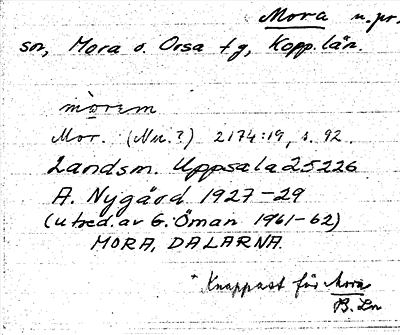 Mora n.pr.
sn, Mora o. Orsa tg, Kopp. län.
mòrẹm
Mor. (Nu.?) 2174:19, s. 92.
Landsm. Uppsala 25226
A. Nygård 1927-29
(utred. av E. Öman 1961-62)
MORA, DALARNA.
* Knappast för Mora
B. Ln